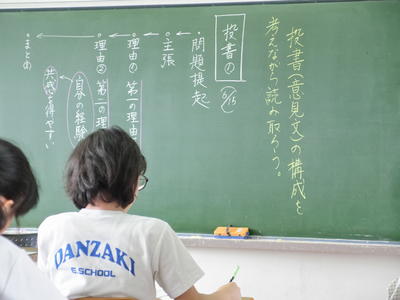 投書(意見文)の構成を
考えながら読み取ろう。
投書① (5/15)
・問題提起
・主張
・理由① 第一の理由
・理由② 第二の理
自分の経験
共感を得やすい
・まとめ
DANZAKI
E.SCHOOL